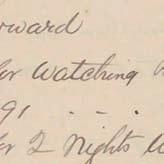 orward
for Watching
91 . - . .
for 2 Nights